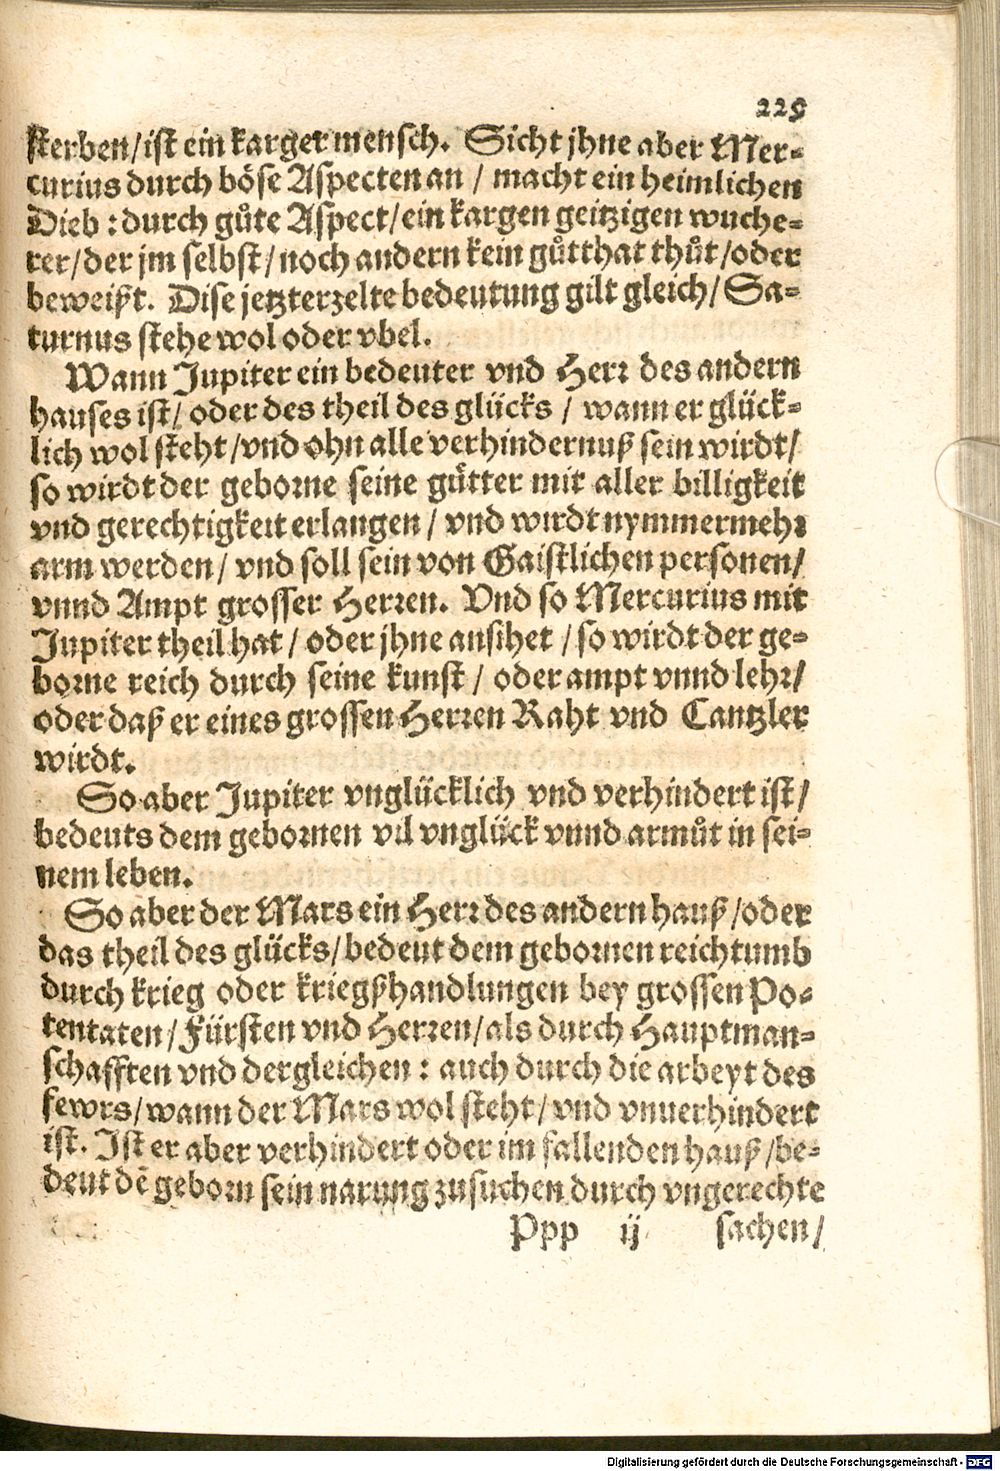 229
sterben/ist ein karger mensch. Sicht jhne aber Mer-
curius durch böse Aspecten an / macht ein heimlichen
Dieb : durch gůte Aspect/ein kargen geitzigen wuche-
rer/der jm selbst/noch andern kein gůtthat thůt/oder
beweißt. Dise jetzterzelte bedeutung gilt gleich/Sa-
turnus stehe wol oder vbel.
Wann Jupiter ein bedeuter vnd Herr des andern
hauses ist/ oder des theil des glücks / wann er glück-
lich wol steht/vnd ohn alle verhindernuß sein wirdt/
so wirdt der geborne seine gůtter mit aller billigkeit
vnd gerechtigkeit erlangen / vnd wirdt nymmermehr
arm werden / vnd soll sein von Gaistlichen personen/
vnnd Ampt grosser Herren. Vnd so Mercurius mit
Jupiter theil hat / oder jhne ansihet / so wirdt der ge-
borne reich durch seine kunst / oder ampt vnnd lehr/
oder daß er eines grossen Herren Raht vnd Cantzler
wirdt.
So aber Jupiter vnglücklich vnd verhindert ist/
bedeuts dem gebornen vil vnglück vnnd armůt in sei-
nem leben.
So aber der Mars ein Herr des andern hauß/oder
das theil des glücks/bedeut dem gebornen reichtumb
durch krieg oder kriegßhandlungen bey grossen Po-
tentaten/Fürsten vnd Herren/als durch Hauptman-
schafften vnd dergleichen : auch durch die arbeyt des
fewrs/wann der Mars wol steht/vnd vnuerhindert
ist. Ist er aber verhindert oder im fallenden hauß/be-
deut dē geborn sein narung zusuchen durch vngerechte
Ppp ij sachen/
Digitalisierung gefördert durch die Deutsche Forschungsgemeinschaft - DFG